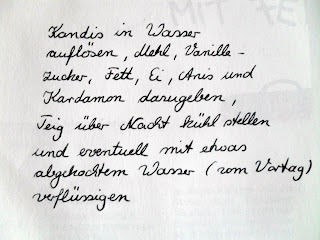 MIT FE
Kandis in Wasser
auflösen, Mehl, Vanille-
zucker, Fett, Ei, Anis und
Kardamon dazugeben,
Teig über Nacht kühl stellen
und eventuell mit etwas
abgekochtem Wasser (vom Vortag)
verflüssigen